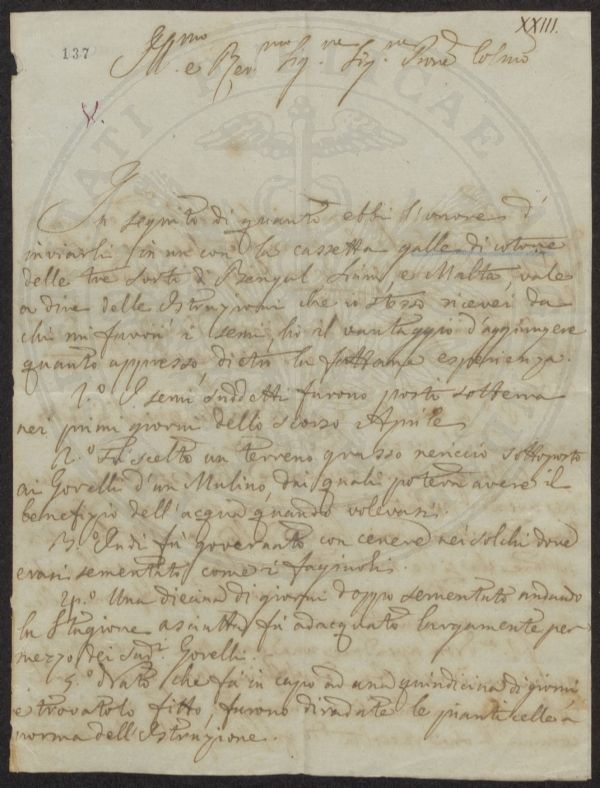 XXIII.
137
Ill.mo e Rev.mo Sig.re Sig.re Prone Colmo
V.
In seguito di quanto ebbi l'onore d'
inviarli in un con la cassetta galle di cotone
delle tre sorti di Bengal Siam e Malta, vale
a dire delle Istruzioni che io stesso ricevei da
chi mi furon i semi, hò il vantaggio d'aggiungere
quanto appresso, dietro la fattama esperienza.
1.º I semi suddetti furono posti sotterra
nei primi giorni dello scorso Aprile
2.º Fù scelto un terreno grasso nericcio sottoposto
ai Gorelli d'un Mulino, dai quali poteva avere il
benefizio dell'acqua quando volevasi.
3.º Indi fù governato con cenere nei solchi dove
erasi sementato come i fagiuoli.
4.º Una diecina di giorni doppo sementato andando
la Stagione asciutta fù adacquato largamente per
mezzo dei Sud.i Gorelli.
5.º Nato che fù in capo ad una quindicina di giorni
e trovatolo fitto, furono diradate le pianticelle a
norma dell'Istruzione.